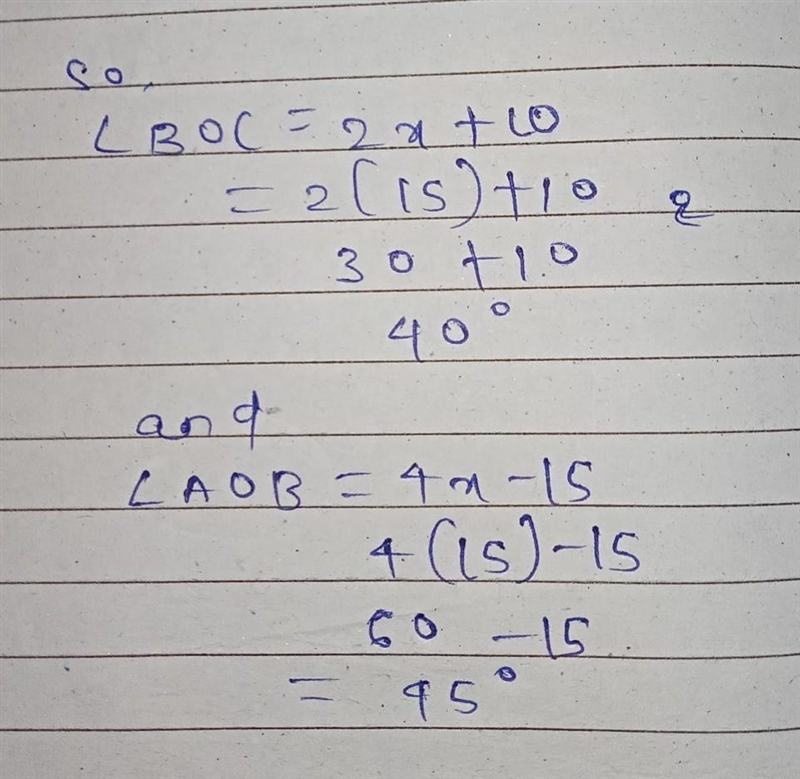 so,
∠BOC = 2x + 10
= 2(15) + 10
30 + 10
40°
and
∠AOB = 4x - 15
4(15) - 15
60 - 15
= 45°